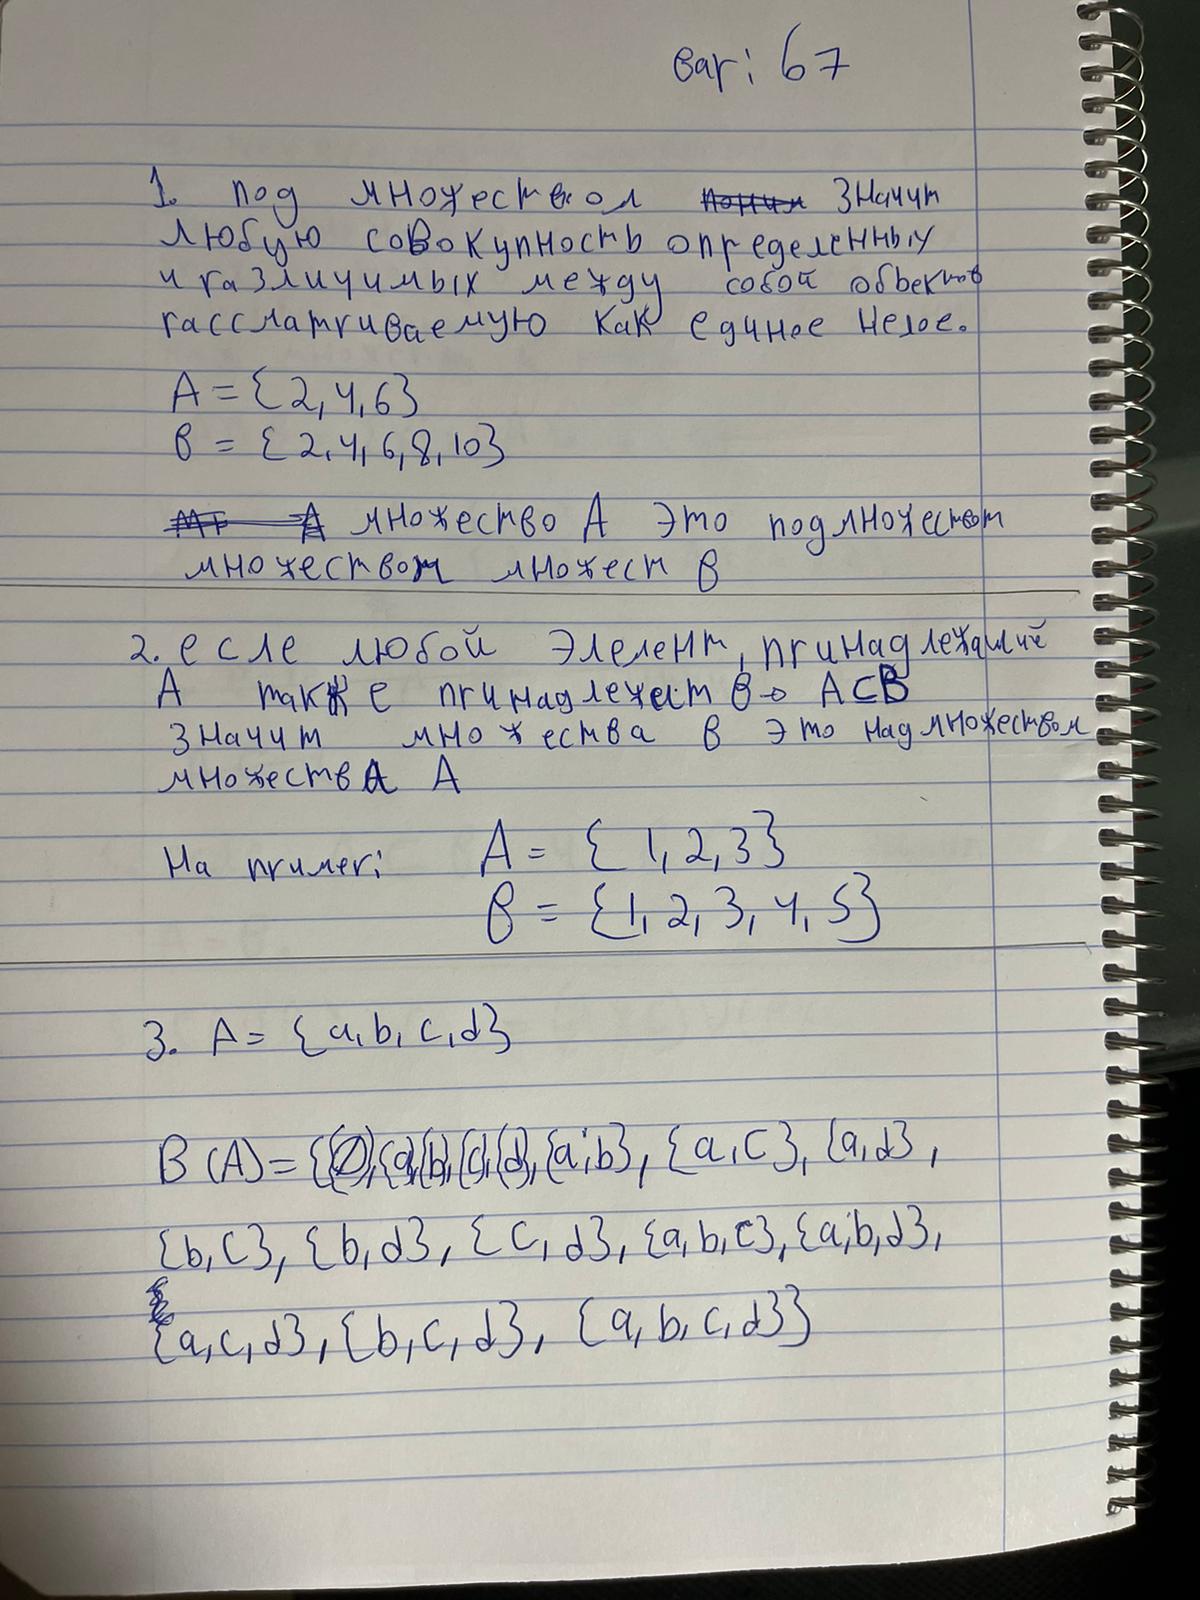 вар: 67
1. под множеством значит
любую совокупность определенных
и различимых между собой объектов
рассматриваемую как единое целое.
A = {2, 4, 6}
B = {2, 4, 6, 8, 10}
множество A это подмножеством
множеством множест B
2. если любой элемент, принадлежащий
A также принадлежит B → A⊂B
значит множества B это надмножеством
множества A
На пример:
A = {1, 2, 3}
B = {1, 2, 3, 4, 5}
3. A = {a, b, c, d}
B(A) = {{∅}, {a}, {b}, {c}, {d}, {a, b}, {a, c}, {a, d},
{b, c}, {b, d}, {c, d}, {a, b, c}, {a, b, d},
{a, c, d}, {b, c, d}, {a, b, c, d}}